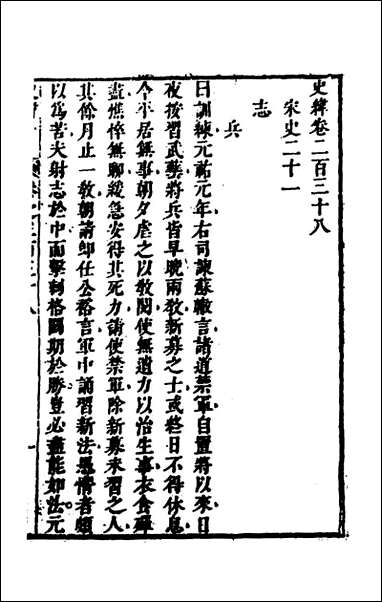 史緯卷二百三十八
宋史二十一
志
兵
曰訓練元祐元年右司諫蘇轍言諸道禁軍自置將以來日
夜按習武藝將兵皆早晚兩教新募之士或終日不得休息
今平居無事朝夕虐之以教閱使無遺力以治生事衣食殫
盡憔悴無聊緩急安得其死力請使禁軍除新募未習之人
其餘月止一教朝請郎任公裕言軍中誦習新法愚懵者頗
以爲苦夫射志於中而擊刺格鬭期於勝豈必盡能如法元